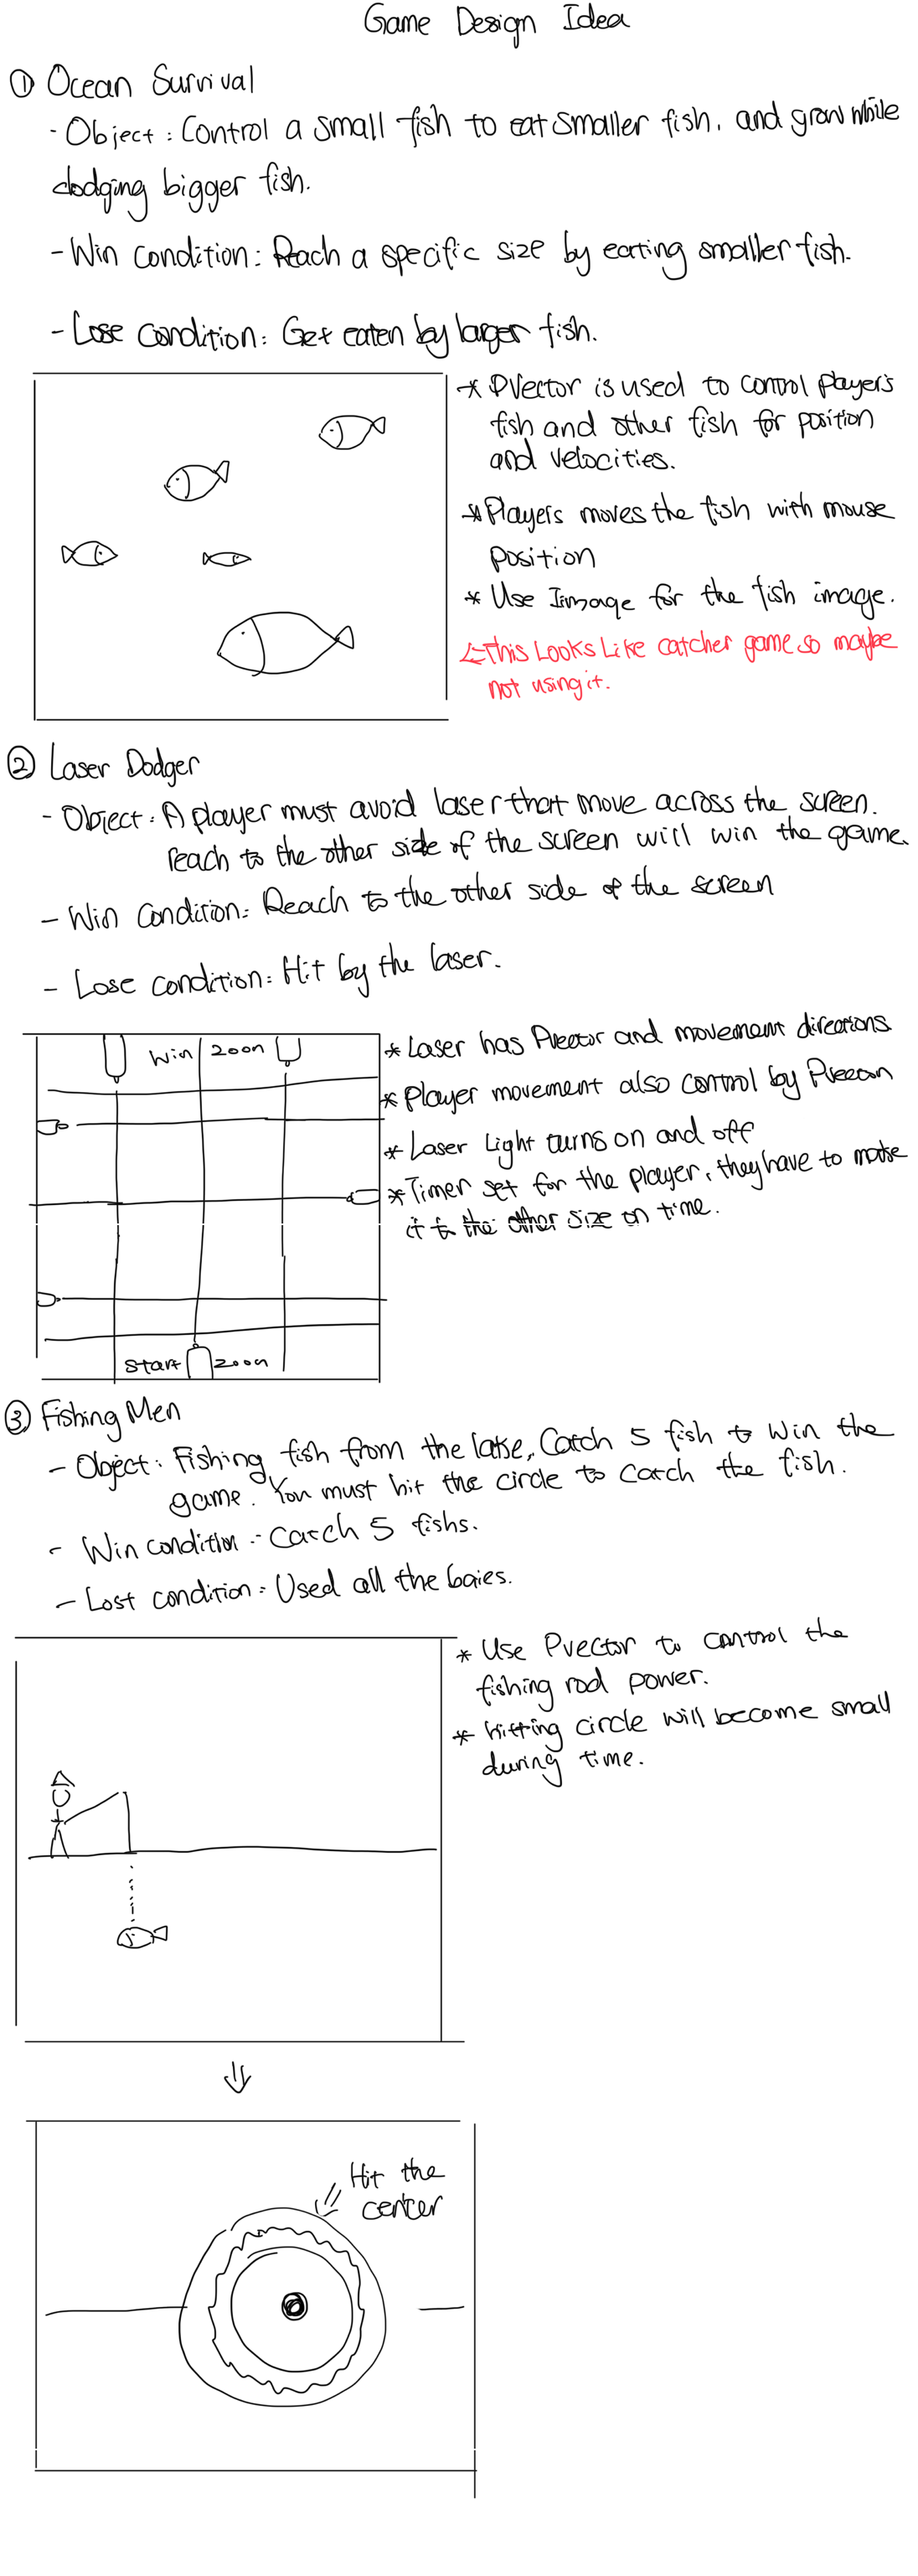 Game Design Idea
① Ocean Survival
- Object : Control a small fish to eat smaller fish, and grow while
dodging bigger fish.
- Win condition : Reach a specific size by eating smaller fish.
- Lose condition : Get eaten by larger fish.
* PVector is used to control player's
fish and other fish for position
and velocities.
* Players moves the fish with mouse
position
* Use Iimage for the fish image.
← This Looks Like catcher game so maybe
not using it.
② Laser Dodger
- Object : A player must avoid laser that move across the screen.
reach to the other side of the screen will win the game.
- Win condition : Reach to the other side of the screen
- Lose condition : Hit by the laser.
Win zoon
* Laser has Pvector and movement directions.
* Player movement also control by
* Laser Light turns on and off
* Timer set for the player, they have to make
it to the other size on time.
Start zoon
③ Fishing Men
- Object : Fishing fish from the lake, Catch 5 fish to Win the
game. You must hit the circle to catch the fish.
- Win condition : Catch 5 fishs.
- Lost condition : Used all the baies.
* Use Pvector to control the
fishing rod power.
* hitting circle will become small
during time.
Hit the
center